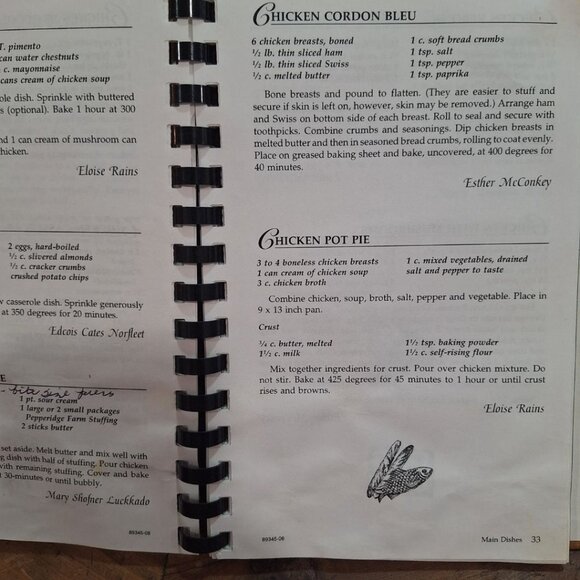 T. pimento
can water chestnuts
c. mayonnaise
cans cream of chicken soup
ole dish. Sprinkle with buttered
s (optional). Bake 1 hour at 300
nd 1 can cream of mushroom can
hicken.
Eloise Rains
2 eggs, hard-boiled
½ c. slivered almonds
½ c. cracker crumbs
crushed potato chips
w casserole dish. Sprinkle generously
at 350 degrees for 20 minutes.
Edcois Cates Norfleet
E
- bite size pieces
1 pt. sour cream
1 large or 2 small packages
Pepperidge Farm Stuffing
2 sticks butter
set aside. Melt butter and mix well with
g dish with half of stuffing. Pour chicken
with remaining stuffing. Cover and bake
t 30-minutes or until bubbly.
Mary Shofner Luckkado
89345-08
CHICKEN CORDON BLEU
6 chicken breasts, boned
½ lb. thin sliced ham
½ lb. thin sliced Swiss
½ c. melted butter
1 c. soft bread crumbs
1 tsp. salt
1 tsp. pepper
1 tsp. paprika
Bone breasts and pound to flatten. (They are easier to stuff and
secure if skin is left on, however, skin may be removed.) Arrange ham
and Swiss on bottom side of each breast. Roll to seal and secure with
toothpicks. Combine crumbs and seasonings. Dip chicken breasts in
melted butter and then in seasoned bread crumbs, rolling to coat evenly.
Place on greased baking sheet and bake, uncovered, at 400 degrees for
40 minutes.
Esther McConkey
CHICKEN POT PIE
3 to 4 boneless chicken breasts
1 can cream of chicken soup
3 c. chicken broth
1 c. mixed vegetables, drained
salt and pepper to taste
Combine chicken, soup, broth, salt, pepper and vegetable. Place in
9 x 13 inch pan.
Crust
¾ c. butter, melted
1½ c. milk
1½ tsp. baking powder
1½ c. self-rising flour
Mix together ingredients for crust. Pour over chicken mixture. Do
not stir. Bake at 425 degrees for 45 minutes to 1 hour or until crust
rises and browns.
Eloise Rains
89345-08
Main Dishes 33